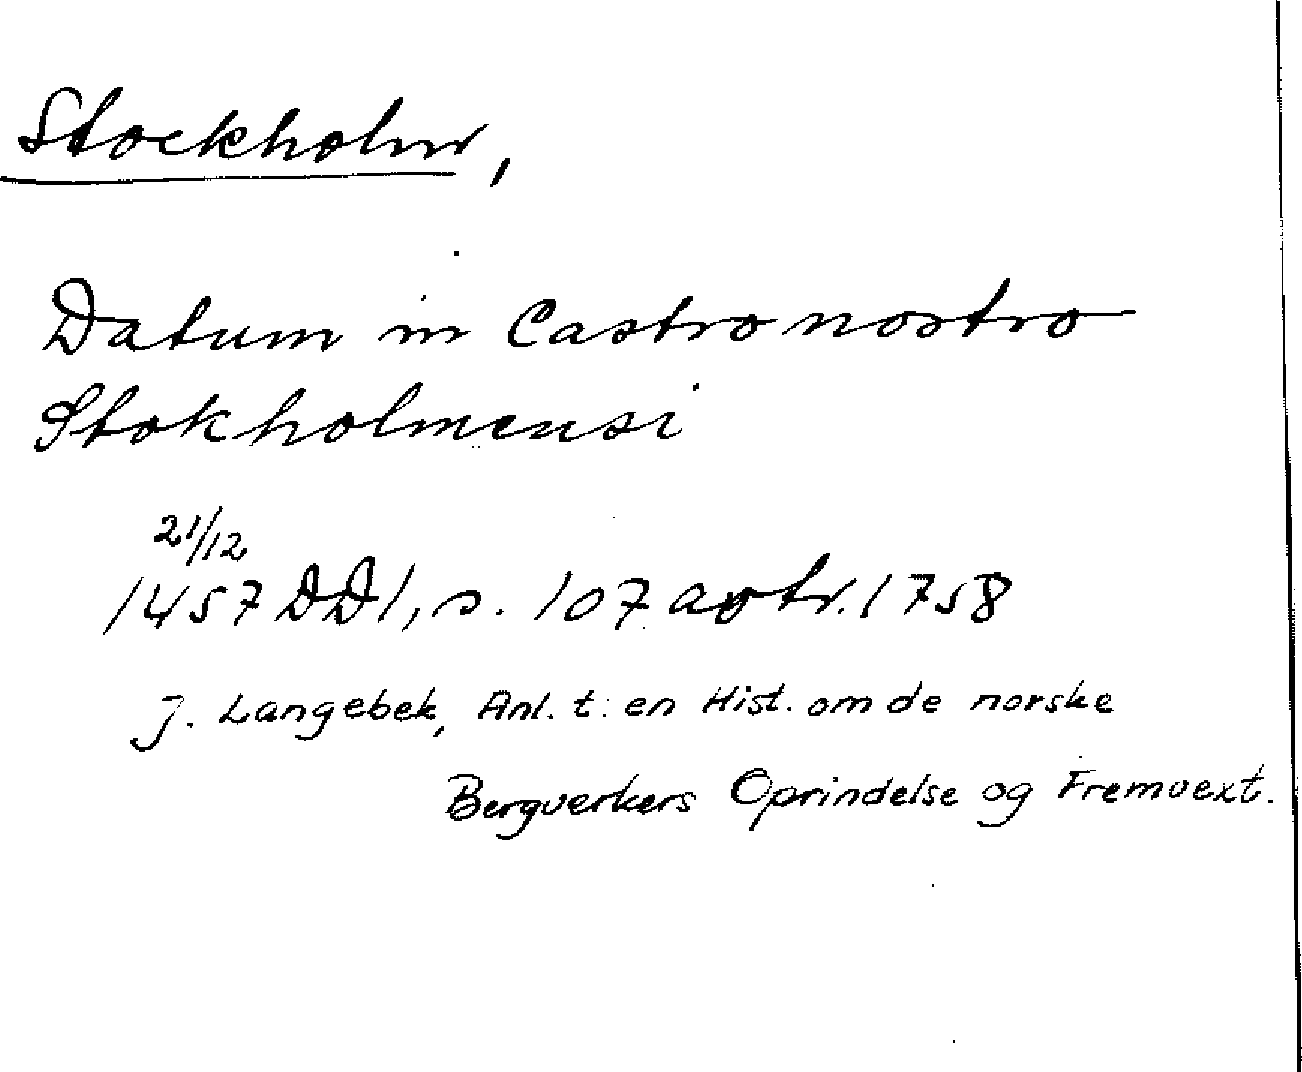 Stockholm,
Datum in Castro nostro
Stokholmensi
21/12
1457 DD1, s. 107 avtr. 1758
J. Langebek, Anl. t. en Hist. om de norske
Bergverkers Oprindelse og Fremvext.